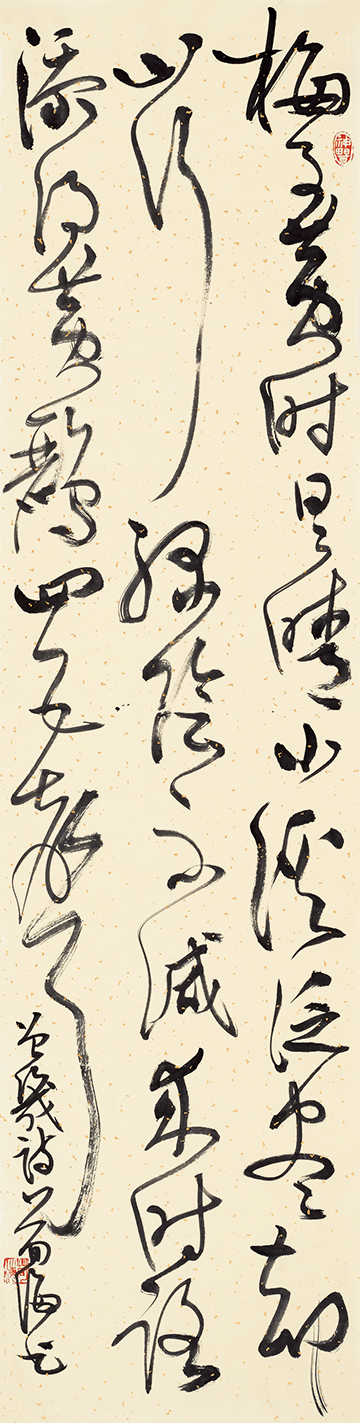 梅子黄时日日晴小溪泛尽却
山行绿阴不减来时路
添得黄鹂四五声
曾幾诗